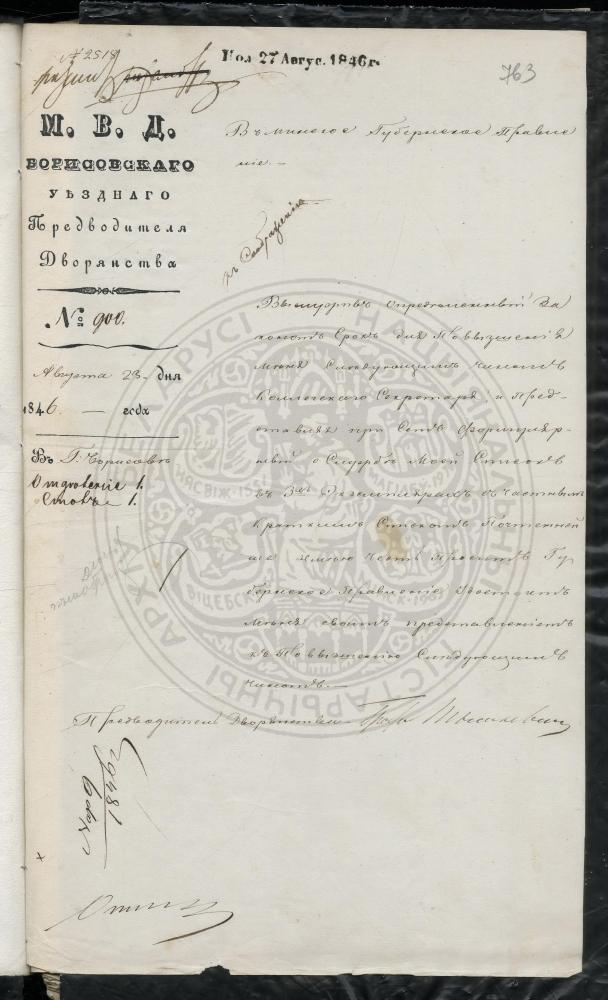 № 2518
Пол 27 Авгус. 1846 г.
763
М. В. Д.
БОРИСОВСКАГО
УѢЗДНАГО
Предводителя
Дворянства
№ 900.
Августа 23 дня
1846. — года
Въ Г. Борисовѣ
Отдѣленіе 1.
Столъ 1.
Въ Минское Губернское Правле
ніе. —
къ Соображенію
Выслуживъ опредѣленный За
кономъ Срокъ для Повышенія
меня Слѣдующимъ чиномъ
Коллежскаго Секретаря, и пред-
ставляя при семъ Формуляр-
ный о Службѣ Моей Списокъ
въ 3хъ Экземплярахъ съ частнымъ
Краткимъ Спискомъ Почтенней
ше имѣю честь просить Гу
бернское Правленіе Удостоить
Меня своимъ представленіемъ
къ Повышенію Слѣдующимъ
чиномъ. —
Предводитель Дворянства